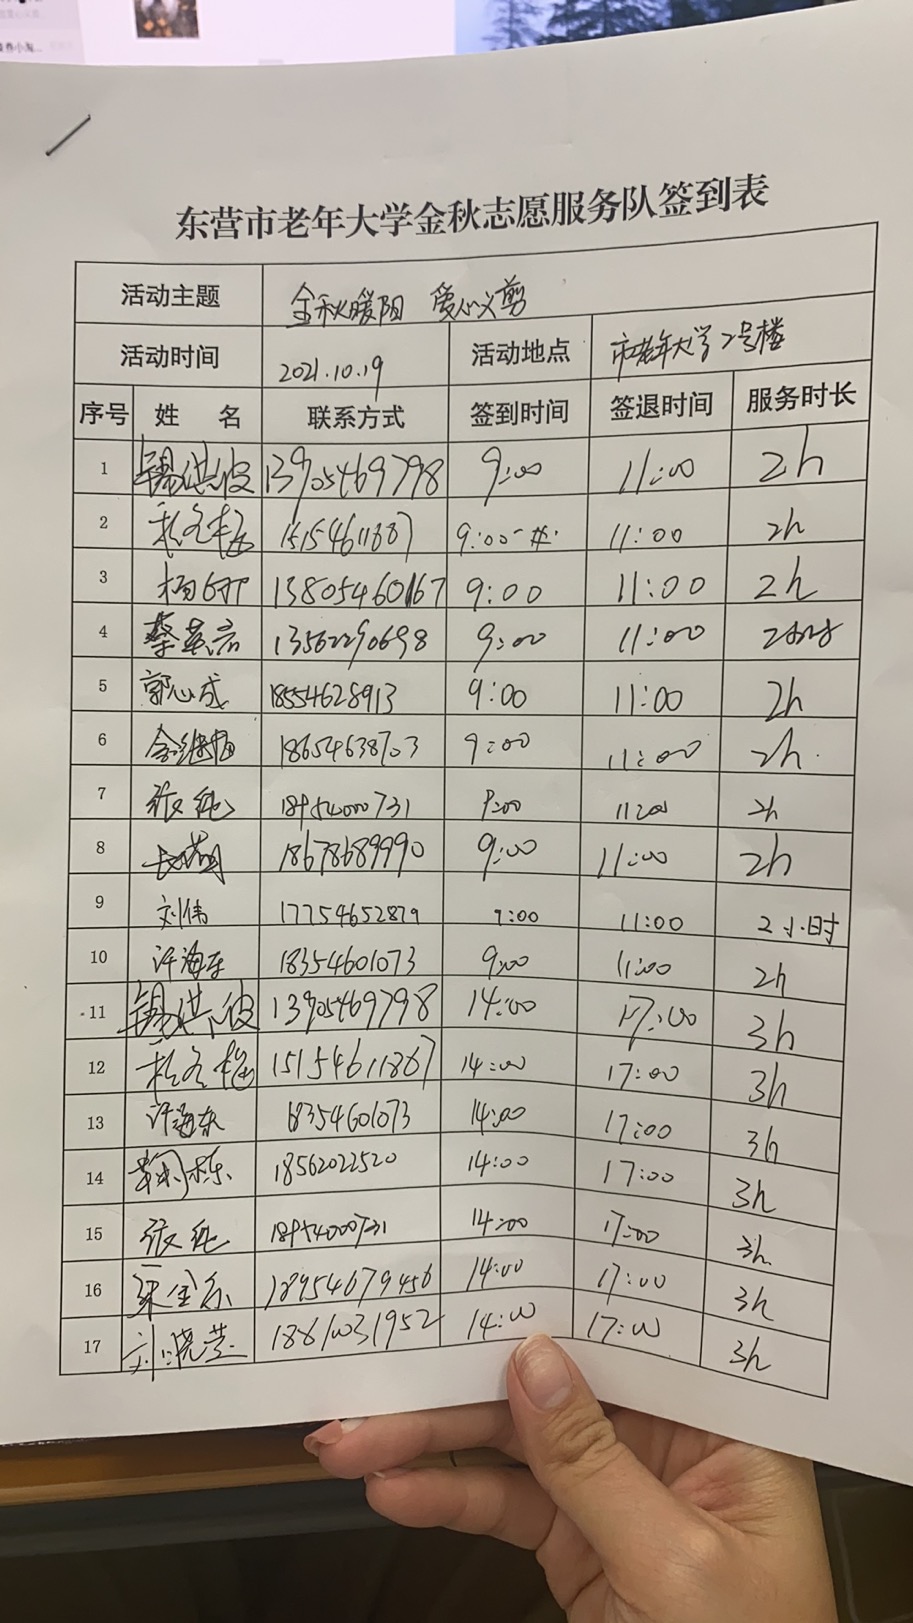 东营市老年大学金秋志愿服务队签到表
活动主题 金秋暖阳 爱心义剪
活动时间 2021.10.19 活动地点 市老年大学2号楼
序号 姓 名 联系方式 签到时间 签退时间 服务时长
1 13905469798 9:00 11:00 2h
2 15154611867 9:00 11:00 2h
3 13805460167 9:00 11:00 2h
4 蔡英岩 13562290698 9:00 11:00 2小时
5 郭心成 18554628913 9:00 11:00 2h
6 18654638703 9:00 11:00 2h.
7 张纯 18954000731 9:00 11:00 2h
8 18678689990 9:00 11:00 2h
9 刘伟 17754652879 9:00 11:00 2小时
10 许海东 18354601073 9:00 11:00 2h
11 13905469798 14:00 17:00 3h
12 15154611867 14:00 17:00 3h
13 许海东 18354601073 14:00 17:00 3h
14 18562022520 14:00 17:00 3h
15 张纯 18954000731 14:00 17:00 3h
16 18954679456 14:00 17:00 3h
17 刘晓芸 18610031952 14:00 17:00 3h